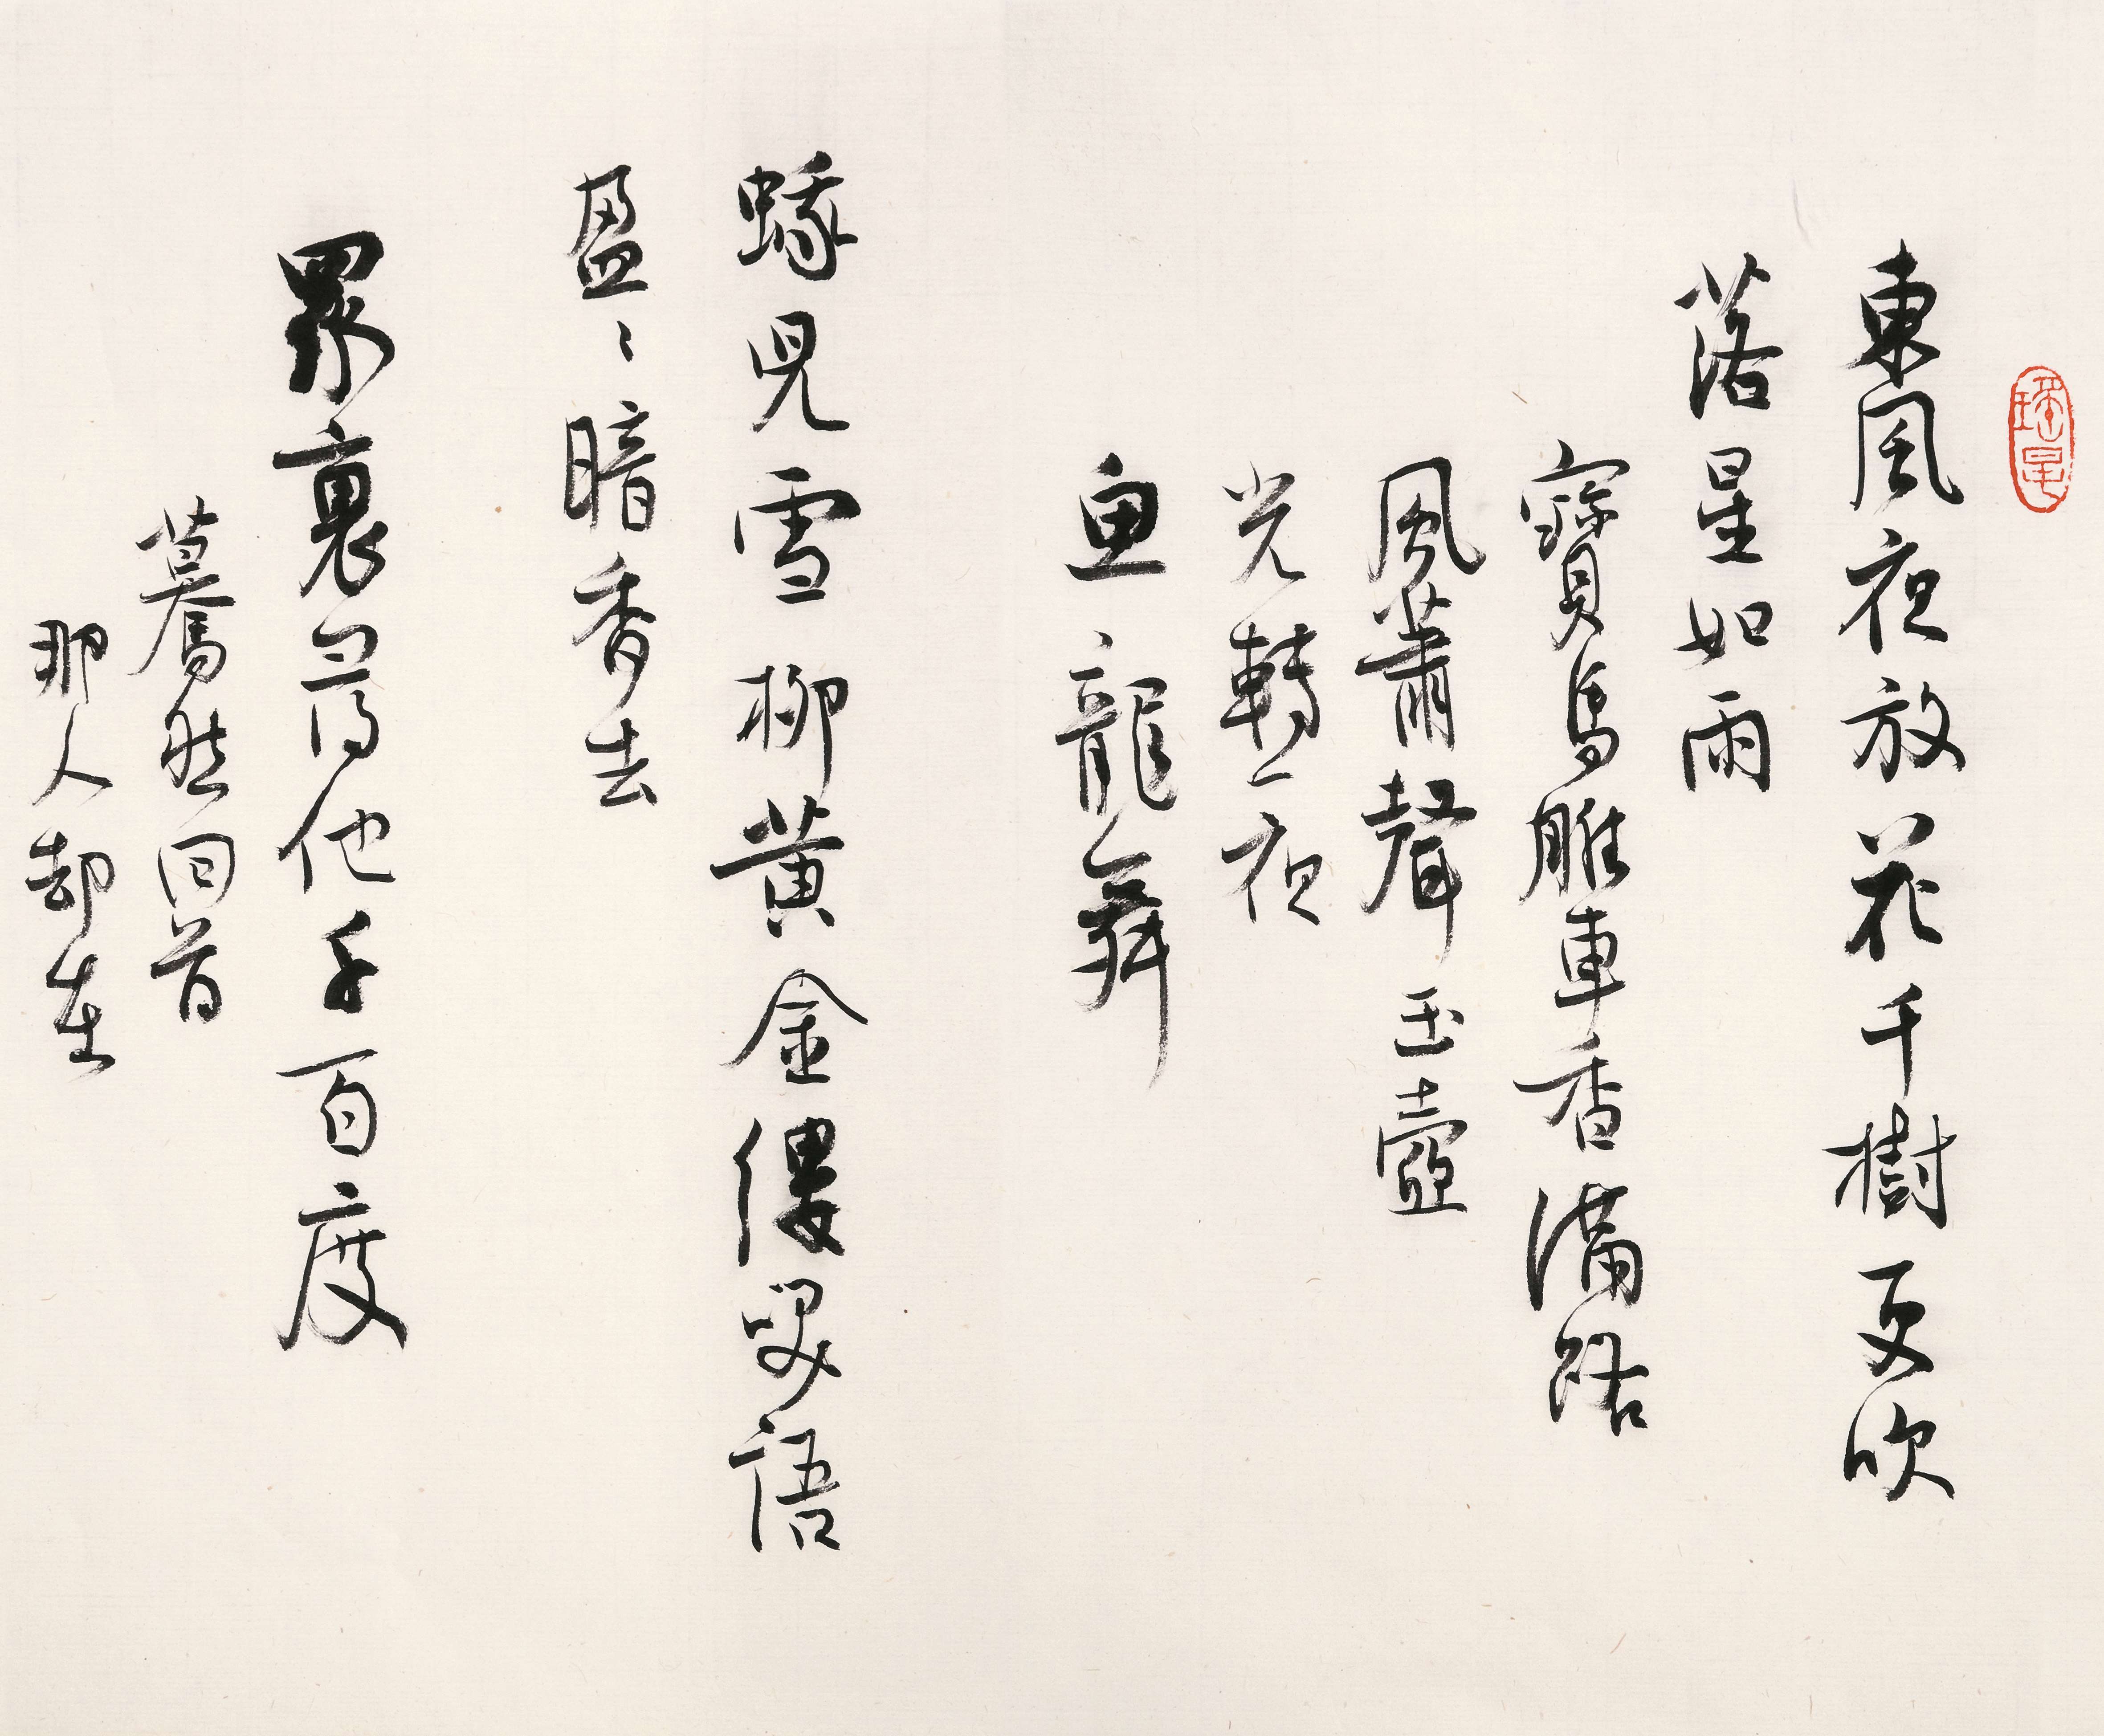 東風夜放花千樹更吹
落星如雨
寶馬雕車香滿路
風蕭聲玉壺
光轉一夜
魚龍舞
蛾兒雪柳黃金縷笑語
盈〻暗香去
眾裏尋他千百度
驀然回首
那人却在